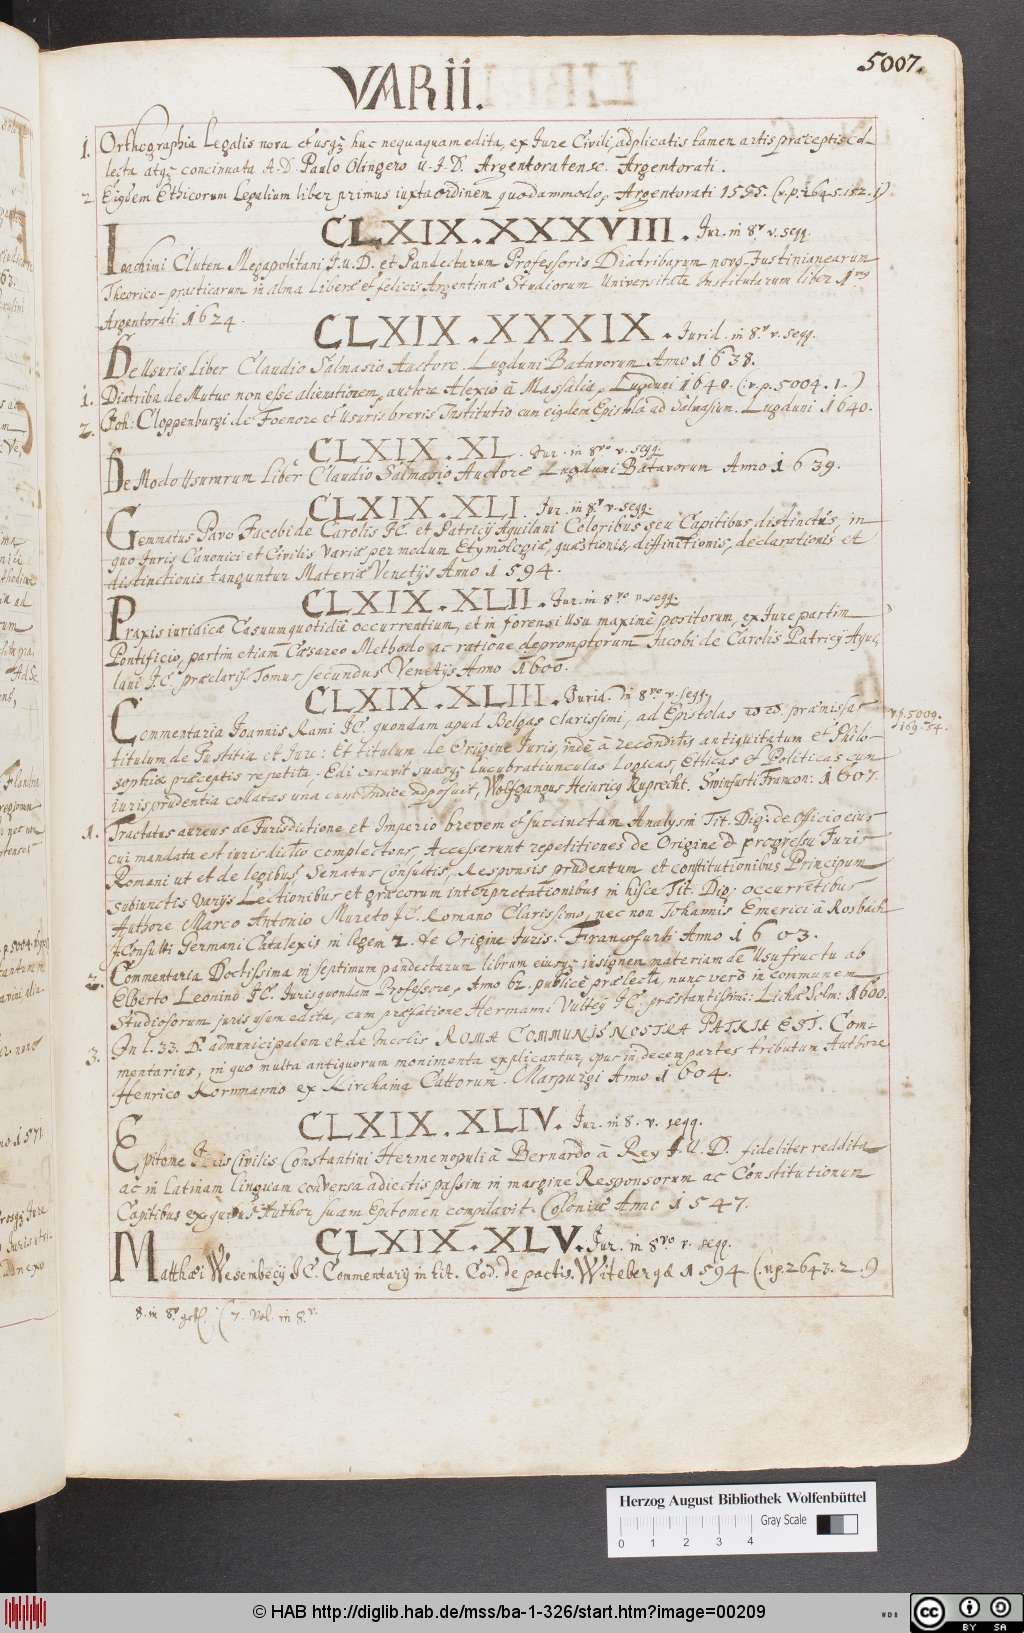 5007.
VARII.
1. Orthographia Legalis nova et usq; huc nequaquam edita, ex Jure Civili, adplicatis tamen artis præceptis col-
lecta atq; concinnata A. D. Paulo Olingero U. J. D. Argentoratense. Argentorati.
2 Eiusdem Ethicorum Legalium liber primus iuxta ordinem quodammodo, Argentorati 1555. (v. p. 2645. 152. 1)
CLXIX. XXXVIII. Jur. in 8.º v. seqq.
Ioachimi Cluten Megapolitani J. U. D. et Pandectarum Professoris Diatribarum novo-Justinianearum
Theorico-practicarum in alma Liberæ et felicis Argentinæ Studiorum Universitate Institutarum liber 1.mus
Argentorati 1624.
CLXIX. XXXIX. Jurid. in 8.º v. seqq.
De Usuris Liber Claudio Salmasio Auctore. Lugduni Batavorum Anno 1638.
1. Diatriba de Mutuo non esse alienationem, auctore Alexio à Massalia, Lugduni 1640. (: v. p. 5004. 1. )
2. Joh: Cloppenburgi de Foenore et Usuris brevis Institutio cum eiusdem Epistola ad Salmasium. Lugduni 1640.
CLXIX. XL. Jur. in 8vo v. seqq.
De Modo Usurarum Liber Claudio Salmasio Auctore Lugduni Batavorum Anno 1639.
CLXIX. XLI. Jur. in 8.º v. seqq.
Gemmatus Pavo Jacobi de Carolis JC. et Patricij Aquilani Coloribus seu Capitibus distinctus, in
quo Juris Canonici et Civilis variæ per modum Etymologiæ, quæstionis, diffinitionis, declarationis et
distinctionis tanguntur Materiæ Venetijs Anno 1594.
CLXIX. XLII. Jur. in 8vo v. seqq.
Praxis iuridicæ Casuum quotidie occurrentium, et in forensi Usu maxime positorum, ex Jure partim
Pontificio, partim etiam Cæsareo Methodo ac ratione depromptorum Jacobi de Carolis Patricij Aqui-
lani JC. præclariss. Tomus secundus Venetijs Anno 1600.
CLXIX. XLIII. Jurid. in 8vo v. seqq.
Commentaria Joannis Rami JC. quondam apud Belgas clarissimi, ad Epistolas præmissas v. p. 5009.
titulum de Justitia et Jure: Et titulum de Origine Juris, inde à reconditis antiquitatum et Philo-
sophiæ præceptis repetita. Edi curavit suasq; lucubratiunculas Logicas, Ethicas et Politicas cum
iurisprudentia collatas una cum Indice adposuit, Wolfgangus Heinricus Ruprecht. Swinfurti Francon: 1607.
1. Tractatus aureus de Jurisdictione et Imperio brevem et succinctam Analysin Tit. Dig: de Officio eius
cui mandata est iurisdictio complectens, Accesserunt repetitiones de Origine et progressu Juris
Romani ut et de legibus Senatus Consultis, Responsis prudentum et constitutionibus Principum
subiunctis varijs Lectionibus et græcorum interpretationibus in hisce Tit. Dig: occurretibus
Authore Marco Antonio Mureto JC. Romano Clarissimo, nec non Johannis Emerici à Rosbach
JConsulti Germani Catalexis in legem 2. de Origine Juris. Francofurti Anno 1603.
2. Commentaria Doctissima in septimum pandectarum librum eiusq; insignem materiam de Usufructu ab
Elberto Leonino JC. Juris quondam Professore, Anno 62. publice prælecta, nunc vero in communem
Studiosorum juris usum edita, cum præfatione Hermanni Vulteij JC. præstantissimi: Lichæ Solm: 1600.
3. In l. 33. D. ad municipalem et de Incolis ROMA COMMUNIS NOSTRA PATRIA EST. Com-
mentarius, in quo multa antiquorum monimenta explicantur, opus in decem partes tributum Authore
Henrico Kornmanno ex Kirchaina Cattorum. Marpurgi Anno 1604.
CLXIX. XLIV. Jur. in 8. v. seqq.
Epitome Juris Civilis Constantini Hermenopuli à Bernardo à Rey J. U. D. fideliter reddita
ac in Latinam linguam conversa adiectis passim in margine Responsorum ac Constitutionum
Capitibus ex quibus Author suam Epitomen compilavit. Coloniæ Anno 1547.
CLXIX. XLV. Jur. in 8vo v. seqq.
Matthæi Wesembecij JC. Commentarij in tit. Cod. de pactis. Witebergæ 1594 (: v. p. 2643. 2. )
8. in 8.º ( 7. Vol. in 8.º
Herzog August Bibliothek Wolfenbüttel
Gray Scale
0 1 2 3 4
© HAB http://diglib.hab.de/mss/ba-1-326/start.htm?image=00209
WDB
CC BY SA